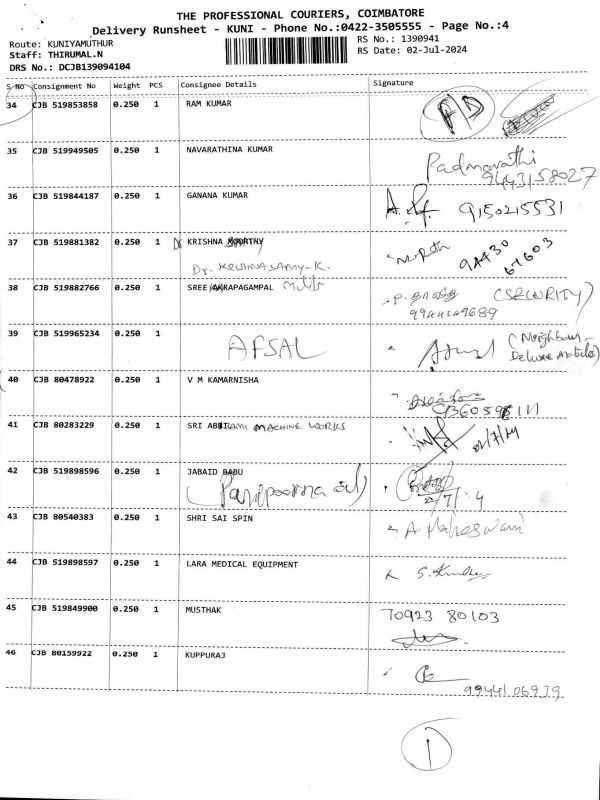 THE PROFESSIONAL COURIERS, COIMBATORE
Delivery Runsheet - KUNI - Phone No.:0422-3505555 - Page No.:4
Route: KUNIYAMUTHUR
RS No.: 1390941
Staff: THIRUMAL.N
RS Date: 02-Jul-2024
DRS No.: DCJB139094104
S No Consignment No Weight PCS Consignee Details Signature
34 CJB 519853858 0.250 1 RAM KUMAR
35 CJB 519949505 0.250 1 NAVARATHINA KUMAR Padmavathi
9443158027
36 CJB 519844187 0.250 1 GANANA KUMAR 9150215531
37 CJB 519881382 0.250 1 Dr KRISHNA MOORTHY 94430
67603
Dr. KRISHNASAMY-K.
38 CJB 519882766 0.250 1 SREE KARAPAGAMPAL Mills (SECURITY)
39 CJB 519965234 0.250 1 AFSAL (Neighbour-
40 CJB 80478922 0.250 1 V M KAMARNISHA
41 CJB 80283229 0.250 1 SRI ABIRAMI MACHINE WORKS
42 CJB 519898596 0.250 1 JABAID BABU
43 CJB 80540383 0.250 1 SHRI SAI SPIN A. Maheswari
44 CJB 519898597 0.250 1 LARA MEDICAL EQUIPMENT
45 CJB 519849900 0.250 1 MUSTHAK 70923 80103
46 CJB 80159922 0.250 1 KUPPURAJ
9944106939